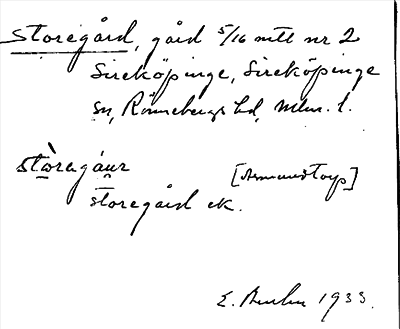 Storegård, gård 5/16 mtl nr 2
Sireköpinge, Sireköpinge
sn, Rönnebergs hd, Mlm. l.
stòragáur [Armandtorp]
storegård ek.
E. 1933.